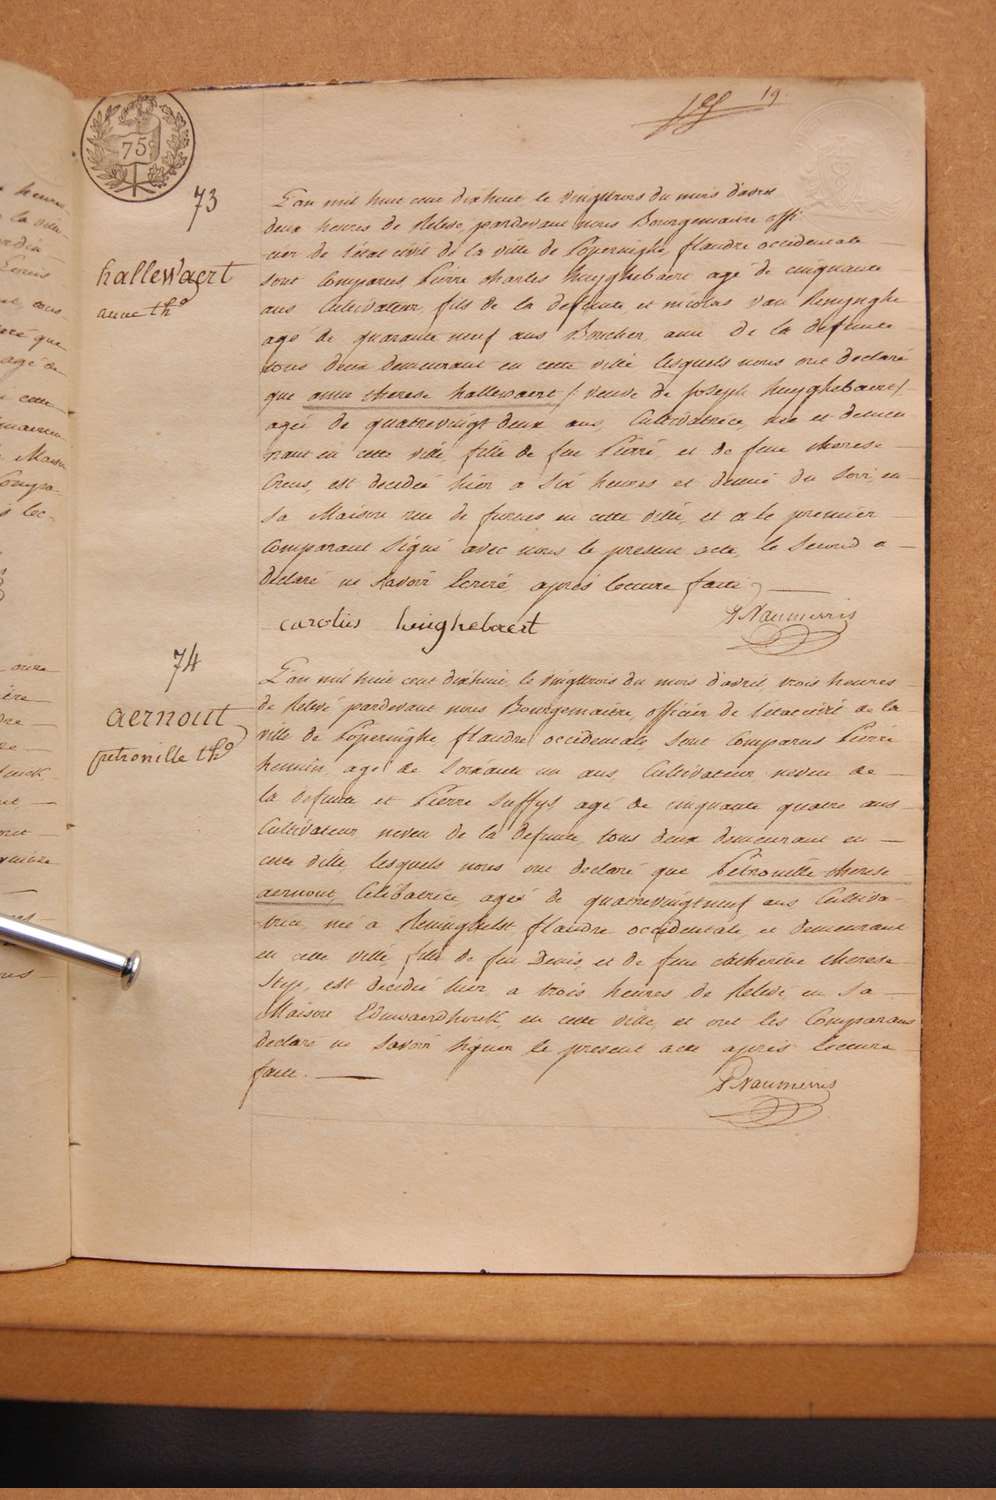 19
75
73
hallewaert
anne th.
L'an mil huit cent dixhuit le vingttrois du mois d'avril
deux heures de Relevé, pardevant nous Bourgemaitre offi
cier de l'état civil de la ville de Poperinghe, flandre occidentale
sont Comparus Pierre charles huyghebaert agé de cinquante
ans Cultivateur, fils de la defunte et nicolas van Renynghe
agé de quarante neuf ans Boucher, ami de la defunte
tous deux demeurant en cette ville lesquels nous ont declaré
que anne therese hallewaert / veuve de joseph huyghebaert /
agée de quatrevingt deux ans, Cultivatrice, née et demeu
rant en cette ville, fille de feu Pierre, et de feue therese
est decedée hier a six heures et demie du Soir, en
sa Maison rue de furnes en cette ville, et a le premier
Comparant Signé avec nous le present acte, le Second a
declaré ne Savoir Ecrire, après lecture faite
carolus huighebaert
74
aernout
petronille th.
L'an mil huit cent dixhuit, le vingttrois du mois d'avril trois heures
de Relevé pardevant nous Bourgemaitre, officier de l'etat civil de la
ville de Poperinghe flandre occidentale Sont Comparus Pierre
hennin, agé de Soixante un ans, Cultivateur neveu de
la defunte et Pierre agé de cinquante quatre ans
Cultivateur neveu de la defunte, tous deux demeurant en
cette ville, lesquels nous ont declaré que Pétronille therese
aernout, Celibatrice, agée de quatrevingtneuf ans Cultiva-
trice, née a Reninghelst flandre occidentale, et demeurant
en cette ville, fille de feu Denis, et de feue catherine therese
est decedée hier a trois heures de Relevé, en Sa
Maison en cette ville, et ont les Comparans
declaré ne Savoir Signer le present acte après lecture
faite.